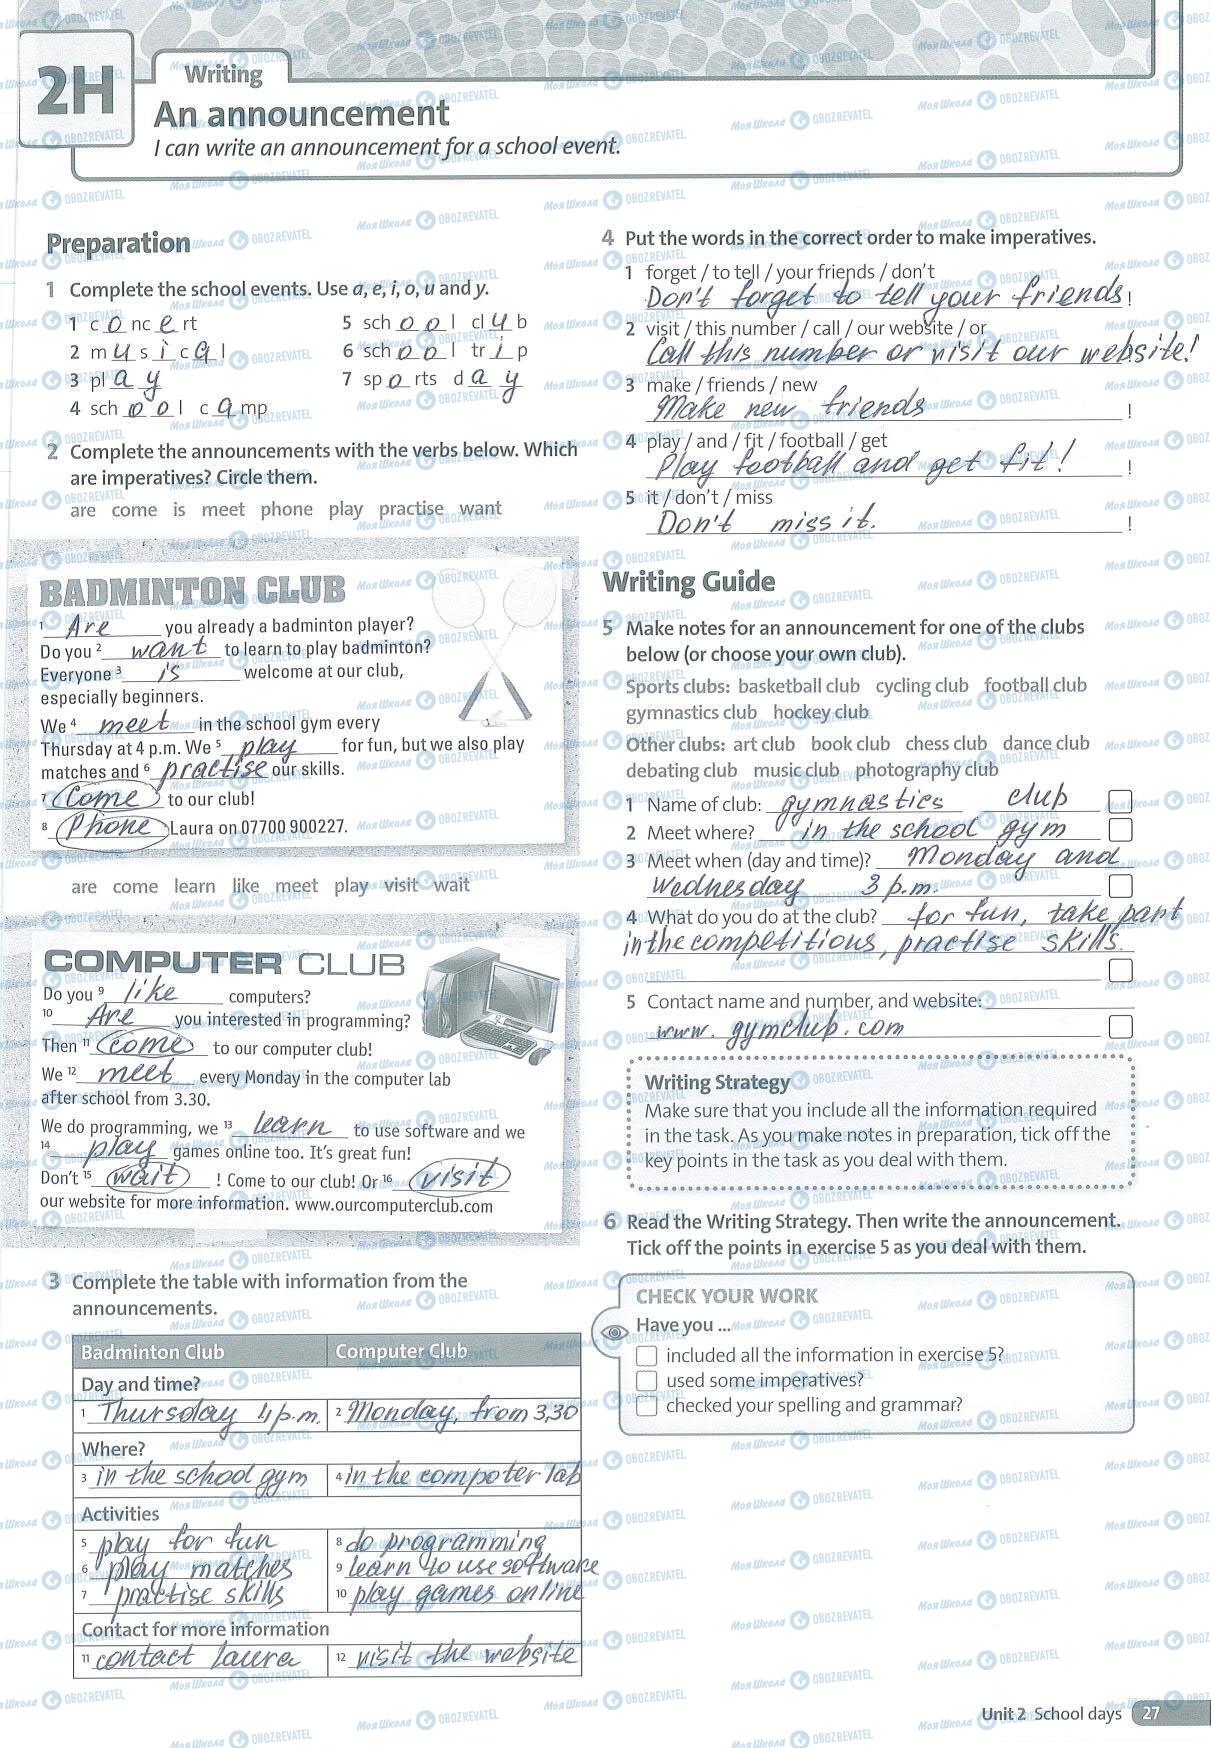 2H
Writing
An announcement
I can write an announcement for a school event.
Preparation
1 Complete the school events. Use a, e, i, o, u and y.
1 c o nc e rt
2 m u s i c a l
3 pl a y
4 sch o o l c a mp
5 sch o o l cl u b
6 sch o o l tr i p
7 sp o rts d a y
2 Complete the announcements with the verbs below. Which
are imperatives? Circle them.
are come is meet phone play practise want
BADMINTON CLUB
1 Are you already a badminton player?
Do you 2 want to learn to play badminton?
Everyone 3 is welcome at our club,
especially beginners.
We 4 meet in the school gym every
Thursday at 4 p.m. We 5 play for fun, but we also play
matches and 6 practise our skills.
7 Come to our club!
8 Phone Laura on 07700 900227.
are come learn like meet play visit wait
COMPUTER CLUB
Do you 9 like computers?
10 Are you interested in programming?
Then 11 come to our computer club!
We 12 meet every Monday in the computer lab
after school from 3.30.
We do programming, we 13 learn to use software and we
14 play games online too. It's great fun!
Don't 15 wait ! Come to our club! Or 16 visit
our website for more information. www.ourcomputerclub.com
3 Complete the table with information from the
announcements.
Badminton Club Computer Club
Day and time?
1 Thursday 4 p.m. 2 Monday, from 3,30
Where?
3 in the school gym 4 in the computer lab
Activities
5 play for fun 8 do programming
6 play matches 9 learn to use software
7 practise skills 10 play games online
Contact for more information
11 contact Laura 12 visit the website
4 Put the words in the correct order to make imperatives.
1 forget / to tell / your friends / don't
Don't forget to tell your friends !
2 visit / this number / call / our website / or
Call this number or visit our website!
3 make / friends / new
Make new friends !
4 play / and / fit / football / get
Play football and get fit! !
5 it / don't / miss
Don't miss it. !
Writing Guide
5 Make notes for an announcement for one of the clubs
below (or choose your own club).
Sports clubs: basketball club cycling club football club
gymnastics club hockey club
Other clubs: art club book club chess club dance club
debating club music club photography club
1 Name of club: gymnastics club
2 Meet where? in the school gym
3 Meet when (day and time)? Monday and
Wednesday 3 p.m.
4 What do you do at the club? for fun, take part
in the competitions, practise skills.
5 Contact name and number, and website:
www. gymclub. com
Writing Strategy
Make sure that you include all the information required
in the task. As you make notes in preparation, tick off the
key points in the task as you deal with them.
6 Read the Writing Strategy. Then write the announcement.
Tick off the points in exercise 5 as you deal with them.
CHECK YOUR WORK
Have you ...
included all the information in exercise 5?
used some imperatives?
checked your spelling and grammar?
Unit 2 School days 27
Моя Школа OBOZREVATEL